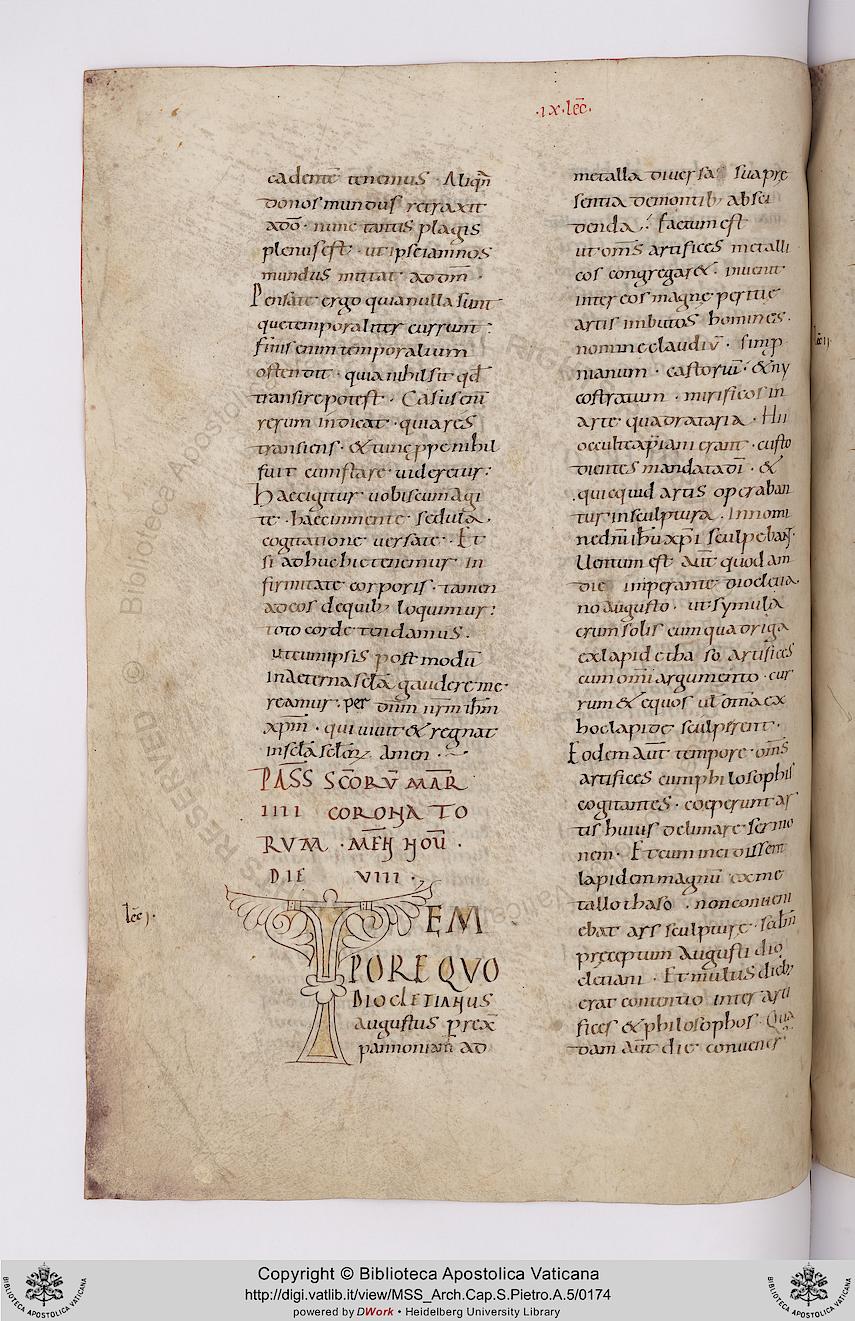 ·ix·lec̄·
cadente᷒ tenemus · Aliqn̄
donos mundus retraxit
addō · nunc tantis plagis
plenus est · ut ipse iam nos
mundus mittat · addm̄ ·
Pensate ergo quia nulla sunt
que temporaliter currunt :
finis enim temporalium
ostendit · quia nihil sit qd̄
transire potest · Casus eni
rerum indicat · quia res
transiens · & tunc ꝓpe nihil
fuit cum stare uideretur :
Haec igitur uobiscum agi
te · haec in mente sedula ·
cogitatione uersate · Et
si adhuc hic tenemur in
firmitate corporis · tamen
ad eos de quib; loquimur :
toto corde tendamus ·
ut cum ipsis post modū
in aeterna sc̄la gaudere me
reamur · per dn̄m nr̄m ih̄m
xp̄m · qui uiuit & regnat
in sc̄la sc̄lor̄ Amen ·
PASS SC̄ORŪ MAR̄
IIII CORONATO
RVM · MEN̄ NOŪ ·
DIE VIII ·
lec̄ j ·
TEM
PORE QVO
DIOCLETIANUS
augustus prex̄
pannoniam̄ ad
metalla diuersa sua pre
sentia demontib; absci
denda : factum est
ut om̄s artifices metalli
cos congregar& · inuenit
inter eos magne peritie
artis imbutos homines ·
nomine claudiū · simp
nianum · castoriū · & ny
costratum · mirificos in
arte quadrataria · Hii
occulte xp̄iani erant · custo
dientes mandata dī · &
quicquid artis operaban
tur in sculptura · In nomi
ne dn̄i ih̄u xp̄i sculpebant ·
Uentum est aut̄ quodam
die imperante dioclecia
no augusto · ut symula
crum solis cum quadriga
ex lapide thaso artifices
cum omni argumento · cur
rum & equos uł omnia ex
hoc lapide sculpserent ·
Eodem aut̄ tempore · om̄s
artifices cum philosophis
cogitantes · coeperunt ar
tis huius delimare sermo
nem · Et cum incidissent
lapidem magnū ex me
tallo thaso · non conueni
ebat ars sculpture · scdm̄
preceptum Augusti dio
cletiani · Et multis dieb;
erat contentio inter arti
fices & philosophos · Qua
dam aut̄ die conuener
lec̄ ij
Copyright © Biblioteca Apostolica Vaticana
http://digi.vatlib.it/view/MSS_Arch.Cap.S.Pietro.A.5/0174
powered by DWork • Heidelberg University Library